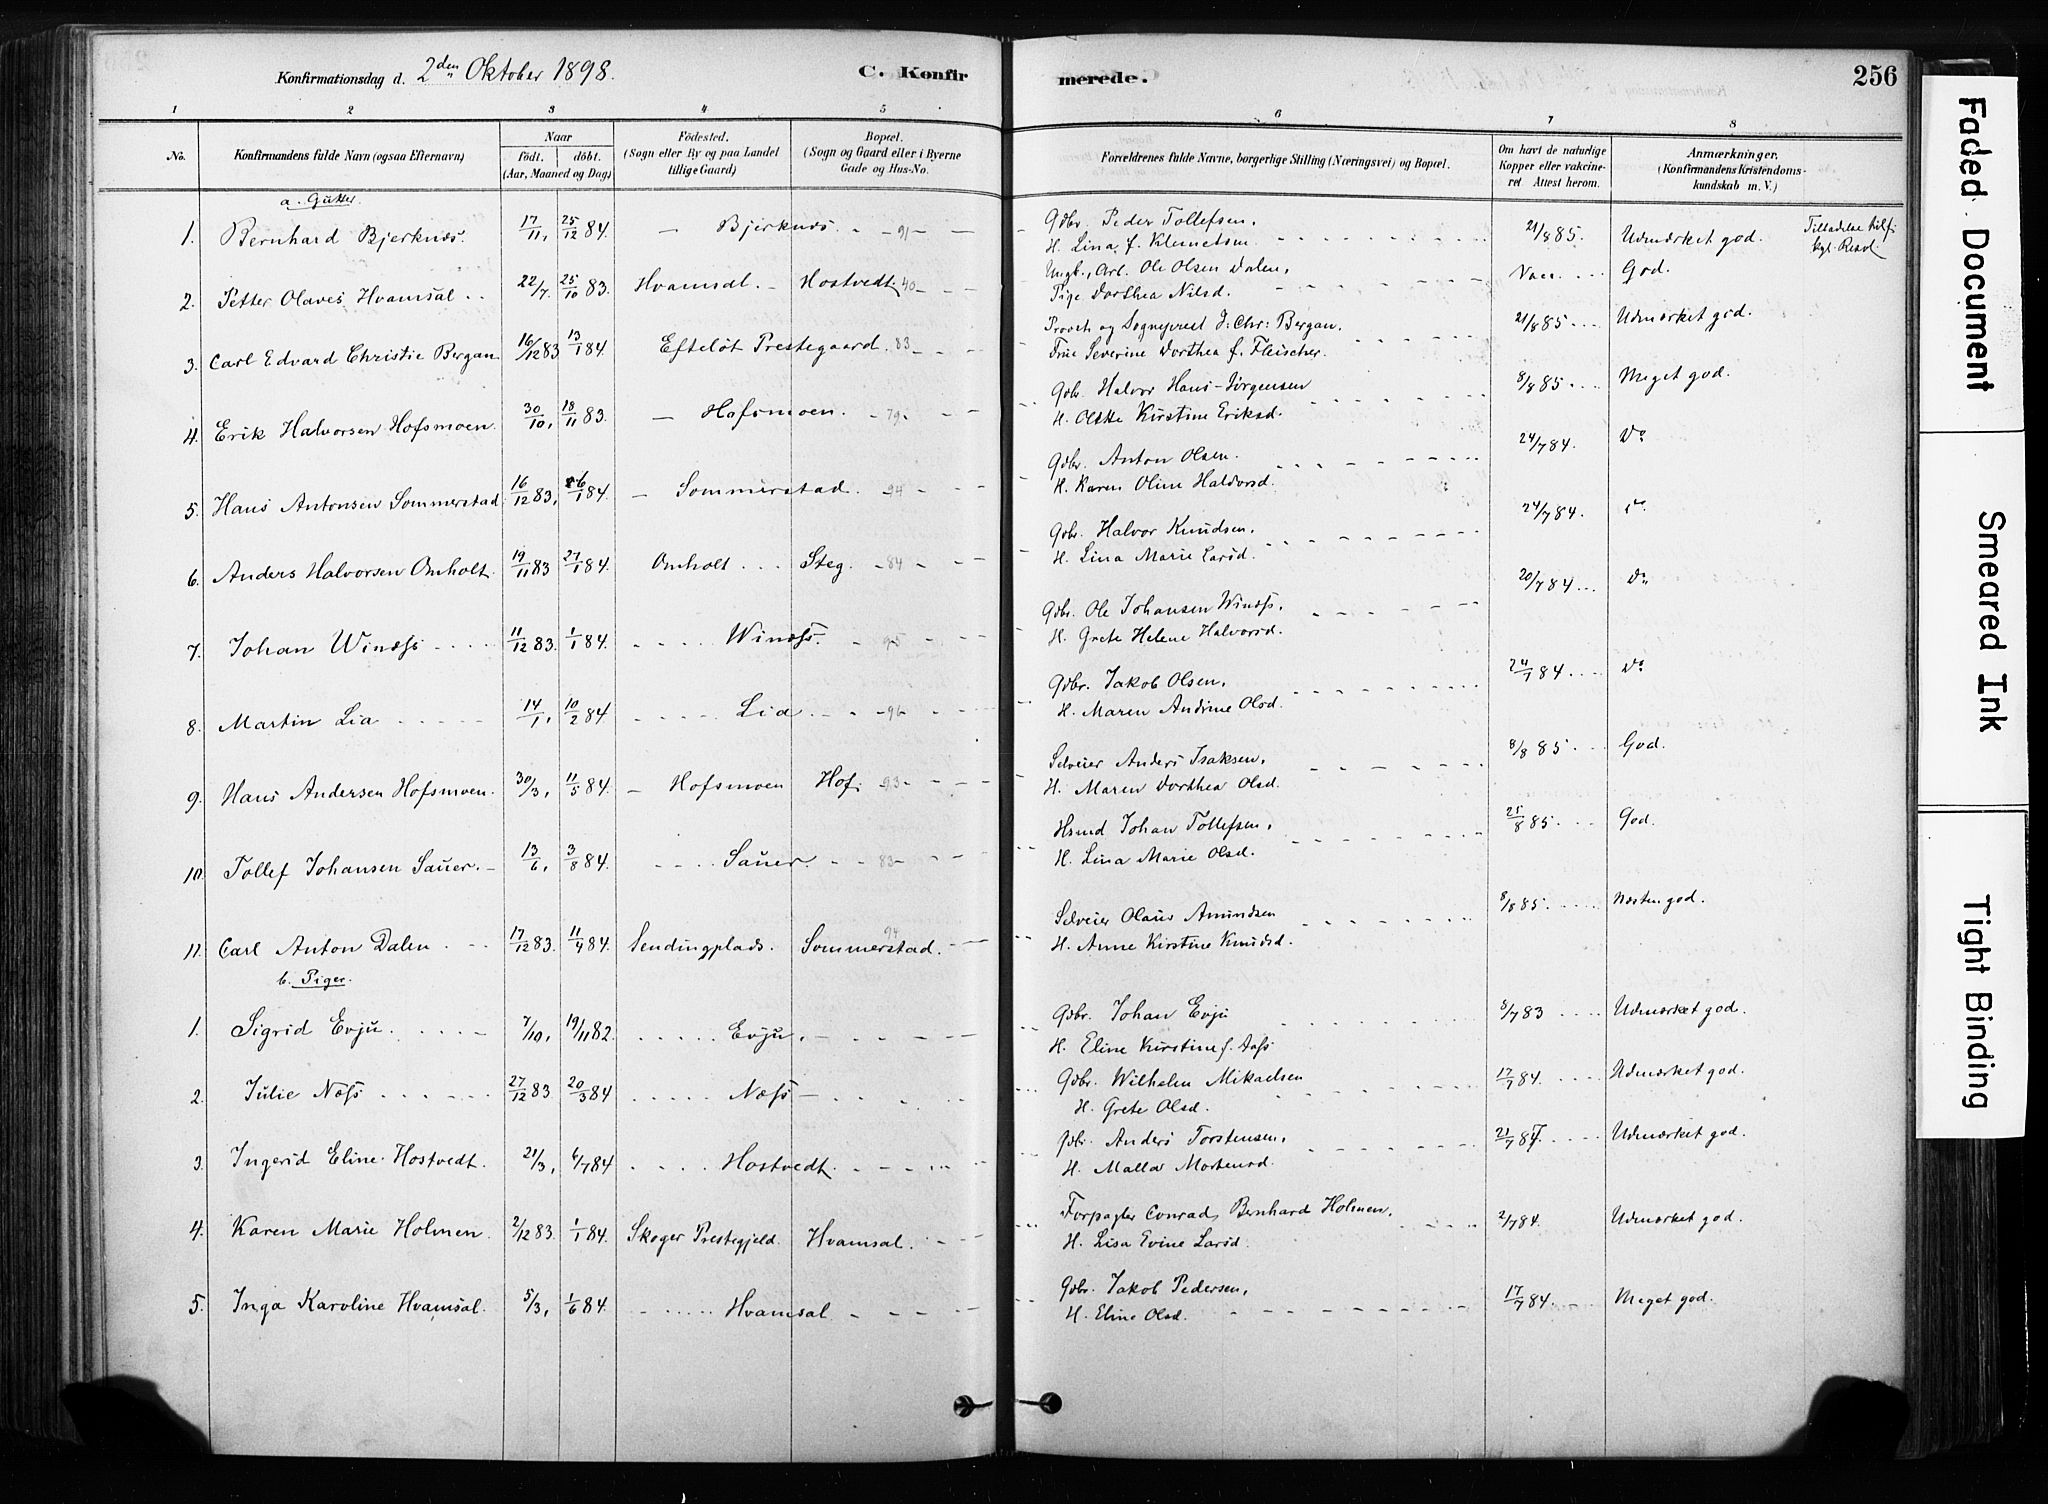 Konfirmationsdag d. 2den Oktober 1898.
C. Konfirmerede.
256
1 2 3 4 5 6 7 8
No.
Konfirmandens fulde Navn (ogsaa Efternavn)
Naar
født. døbt.
(Aar, Maaned og Dag)
Fødested.
(Sogn eller By og paa Landet
tillige Gaard)
Bopæl.
(Sogn og Gaard eller i Byerne
Gade og Hus-No.
Forældrenes fulde Navne, borgerlige Stilling (Næringsvei) og Bopæl.
Om havt de naturlige
Kopper eller vakcine-
ret. Attest herom.
Anmærkninger.
(Konfirmandens Kristendoms-
kundskab m. V.)
a. Gutter.
1. Bernhard Bjerknæs. 17/11, 25/12 84. — Bjerknæs. - 91 - — Gdbr. Peder Tollefsen, 21/8 85. Udmærket god. Tilladelse
H. Lina f. Klemetsen kgl. Resol.
2. Petter Olaves Hvamsal 22/7. 25/10 83. Hvamsal. - Hostvedt. 40 - Ungk., Arb. Ole Olsen Dalen, Vacc. God.
Pige Dorthea Nilsd.
3. Carl Edvard Christie Bergan 16/12 83 13/1 84. Efteløt Prestegaard. 83 - Provst og Sogneprest J. Chr. Bergan, 21/8 85 Udmærket god.
Frue Severine Dorthea f. Fleischer.
4. Erik Halvorsen Hofsmoen. 30/10, 18/11 83. — Hofsmoen. - 79. - Gdbr. Halvor Hans-Jørgensen 8/8 85. Meget god.
H. Kirstine Eriksd.
5. Hans Antonsen Sommerstad 16/12 83, 6/1 84. — Sommerstad. - 94 - Gdbr. Anton Olsen. 24/7 84. Do
H. Karen Oline Halvorsd.
6. Anders Halvorsen Omholt. 19/11 83 27/1 84. Omholt. Steg. - 84 - Gdbr. Halvor Knudsen, 24/7 84. do
H. Lina Marie Larsd.
7. Johan Winæss 11/12 83. 1/1 84. Winæss. - 95 Gdbr. Ole Johansen Winæss, 20/7 84 Do
H. Grete Helene Halvorsd.
8. Martin Lia 14/1, 10/2 84. Lia. - 96 - Gdbr. Jakob Olsen, 84. Do
H. Maren Andrine Olsd.
9. Hans Andersen Hofsmoen. 30/3, 11/5 84. — Hofsmoen Hof. 93 - Selveier Anders Isaksen, 8/8 85. God.
H. Maren Dorthea Olsd.
10. Tollef Johansen Sauer. - 13/6, 3/8 84. Sauer. - 83 - Hsmd Johan Tollefsen, 21/8 85. God.
H. Lina Marie Olsd.
11. Carl Anton Dalen. 17/12 83. 11/4 84. Sendingplads. Sommerstad. 94 - Selveier Olaus Amundsen 8/8 85. Næsten god.
H. Anne Kirstine Knudsd.
b. Piger.
1. Sigrid Evju. 7/10, 19/11 82. Evju. - Gdbr. Johan Evju 3/7 83 Udmærket god.
H. Eline Kirstine f. Aass
2. Julie Næss 27/12 83 20/3 84 Næss - Gdbr. Wilhelm Mikaelsen 17/7 84. Udmærket god.
H. Grete Olsd.
3. Ingerid Eline Hostvedt. 21/3, 6/7 84 Hostvedt. Gdbr. Anders Torstensen, 21/7 84. Udmærket god.
H. Malla Mortensd.
4. Karen Marie Holmen. 2/12 83. 1/1 84. Skoger Prestegjeld. Hvamsal. Forpagter Conrad Bernhard Holmen, 2/7 84. Udmærket god.
H. Lisa Evine Larsd.
5. Inga Karoline Hvamsal. 5/3, 1/6 84. Hvamsal. Gdbr. Jakob Pedersen, 17/7 84. Meget god.
H. Eline Olsd.
Faded Document
Smeared Ink
Tight Binding